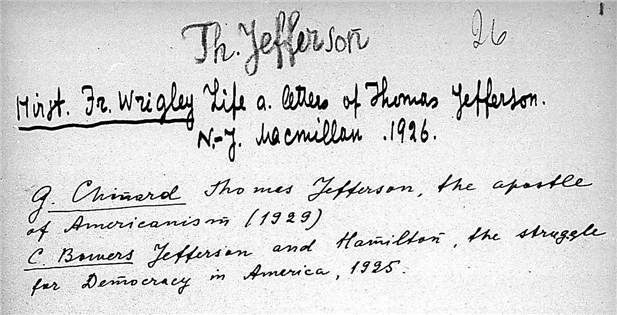 Th. Jefferson 26
Hirst. Fr. Wrigley Life a. letters of Thomas Jefferson.
N.-J. Macmillan .1926.
G. Chinard Thomas Jefferson, the apostle
of Americanism (1929)
C. Bowers Jefferson and Hamilton, the struggle
for Democracy in America, 1925.